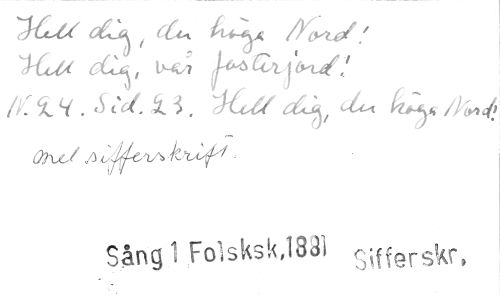 Hell dig, du höga Nord!
Hell dig, vår fosterjord!
N. 24. Sid. 23. Hell dig, du höga Nord!
mel sifferskrift.
Sång 1 Folsksk,1881 Sifferskr,